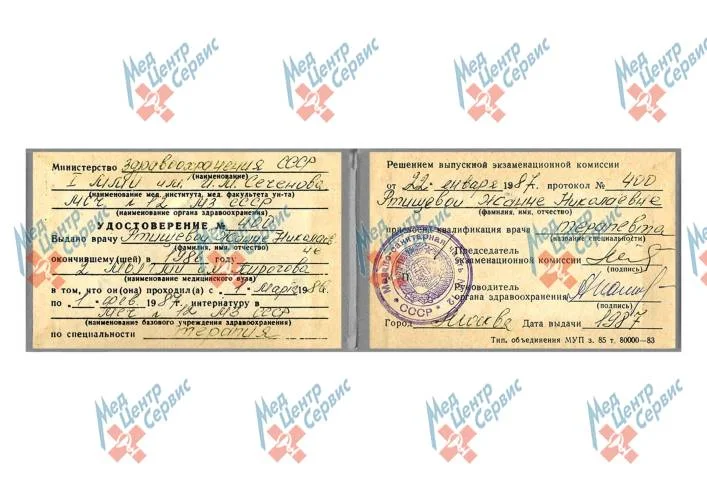 Мед Центр Сервис
Мед Центр Сервис
Мед Центр Сервис
Мед Центр Сервис
Министерство здравоохранения СССР
(наименование)
I ММИ им. И.М. Сеченова
(наименование мед. института, мед. факультета ун-та)
МСЧ № 12 МЗ СССР
(наименование органа здравоохранения)
УДОСТОВЕРЕНИЕ № 400
Выдано врачу Ртищевой Жанне Николаев
не
(фамилия, имя, отчество)
окончившему(шей) в 198 году
2 Пирогова
(наименование медицинского вуза)
в том, что он(она) проходил(а) с 1 Март 1986
по 1 фев. 1987 интернатуру в
МСЧ № 12 МЗ СССР
(наименование базового учреждения здравоохранения)
по специальности терапия
Решением выпускной экзаменационной комиссии
от 22 января 1987. протокол № 400
Ртищевой Жанне Николаевне
(фамилия, имя, отчество)
присвоена квалификация врача терапевта
(название специальности)
Председатель
экзаменационной комиссии
(подпись)
Руководитель
органа здравоохранения
(подпись)
Медико-санитарная часть №
СССР
Город Москва Дата выдачи 1987
Тип. объединения МУП з. 85 т. 80000—83
Мед Центр Сервис
Мед Центр Сервис
Мед Центр Сервис
Мед Центр Сервис